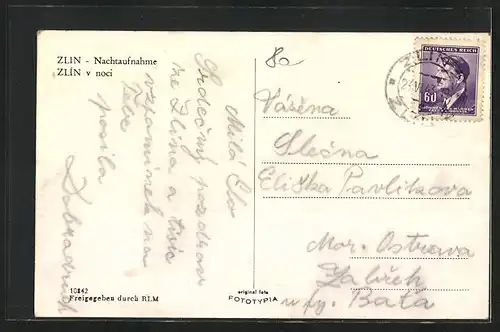 ZLIN - Nachtaufnahme
ZLÍN v noci
Milá Elo
Srdečný pozdrav
ze Zlína a tisíc
vzpomínek na
Tebe
posílá
10142
Freigegeben durch RLM
original foto
FOTOTYPIA
8a
DEUTSCHES REICH
60
ZLIN
Vážená
Slečna
Eliška Pavlíková
Mor. Ostrava
Zábřeh
u fy. Baťa